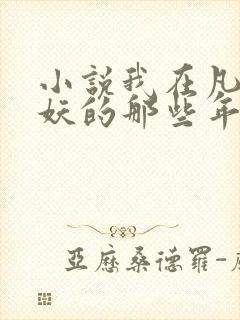 小說我在凡
妖的那些年
亞歷桑德羅-